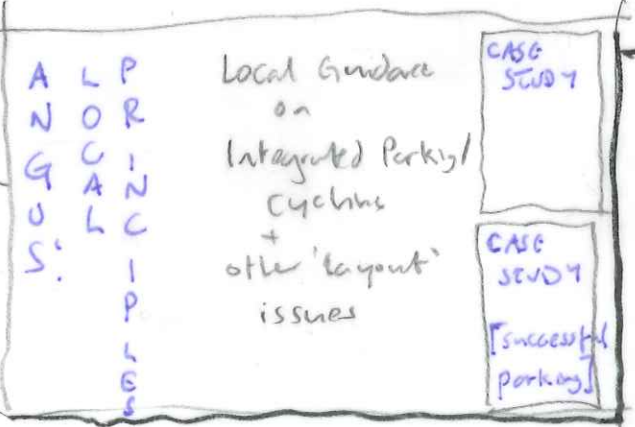 ANGUS:
LOCAL
PRINCIPLES
Local Guidance
on
Integrated Parking/
Cycling
+
other 'layout'
issues
CASE
STUDY
CASE
STUDY
[successful
parking]